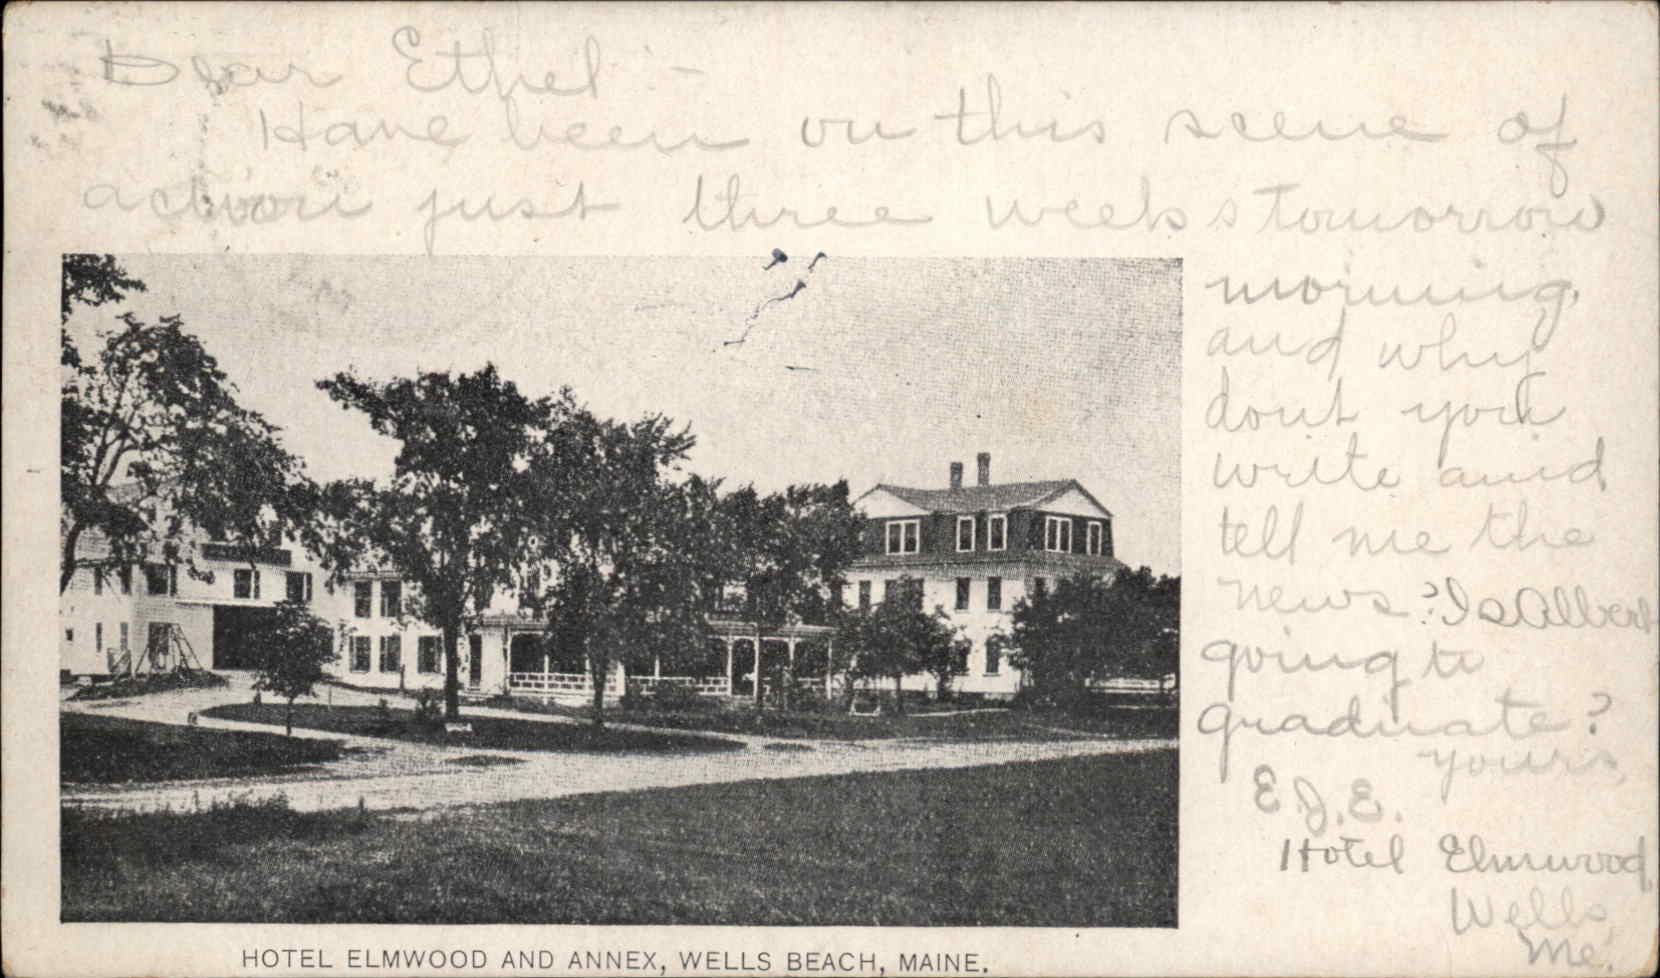 Dear Ethel -
Have been on this scene of
action just three weeks tomorrow
morning,
and why
dont you
write and
tell me the
news? Is Albert
going to
graduate?
yours,
E. J. E.
Hotel Elmwood,
Wells,
Me.
HOTEL ELMWOOD AND ANNEX, WELLS BEACH, MAINE.